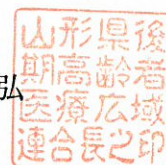 弘
山形県後
期高齢者
医療広域
連合長之印